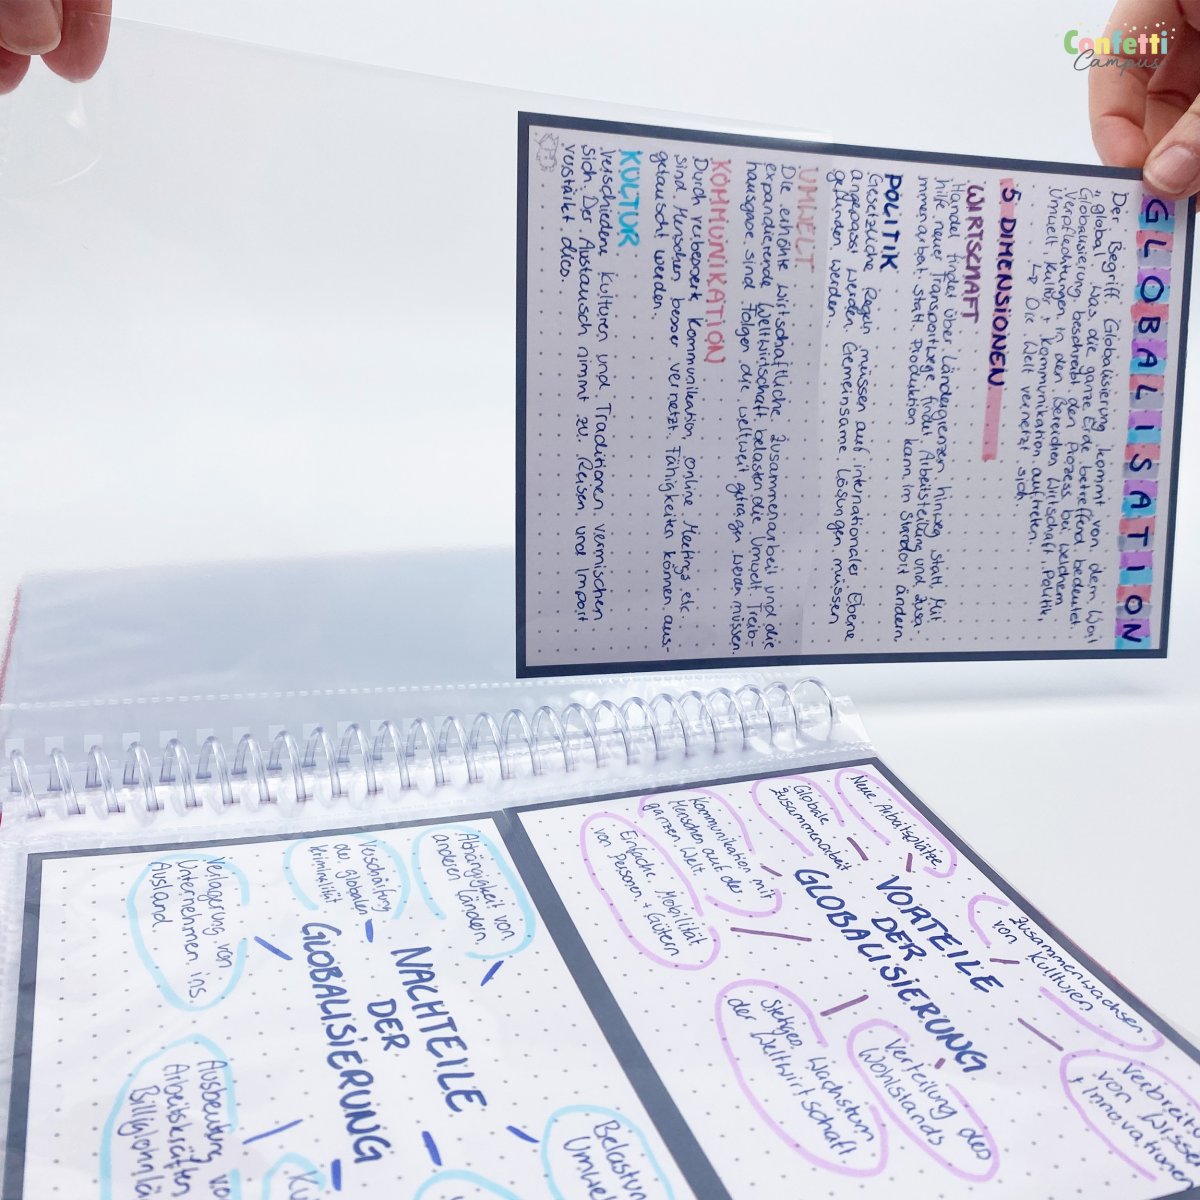 Confetti
Campus
GLOBALISATION
Der Begriff Globalisierung kommt von dem Wort
"global". Was die ganze Erde betreffend bedeutet.
Globalisierung beschreibt den Prozess bei welchem
Verpflechtungen in den Bereichen Wirtschaft, Politik,
Umwelt, Kultur + Kommunikation auftreten.
↳ Die Welt vernetzt sich.
5 DIMENSIONEN
WIRTSCHAFT
Handel findet über Ländergrenzen hinweg statt. Mit
hilfe neuer Transportwege findet Arbeitsteilung und Zusa-
mmenarbeit statt. Produktion kann im Standort ändern.
POLITIK
Gesetzliche Regeln müssen auf internationaler Ebene
angepasst werden. Gemeinsame Lösungen müssen
gefunden werden.
UMWELT
Die erhöhte wirtschaftliche Zusammenarbeit und die
expandierende Weltwirtschaft belasten die Umwelt. Treib-
hausgase sind Folgen die weltweit getragen werden müssen.
KOMMUNIKATION
Durch verbesserte Kommunikation, online Meetings etc.
sind Menschen besser vernetzt. Fähigkeiten können aus-
getauscht werden.
KULTUR
Verschiedene Kulturen und Traditionen vermischen
sich. Der Austausch nimmt zu. Reisen und Import
verstärkt dies.
VORTEILE
DER
GLOBALISIERUNG
Neue Arbeitsplätze
Globale
Zusammenarbeit
Kommunikation mit
Menschen auf der
ganzen Welt.
Einfache Mobilität
von Personen + Gütern
Zusammenwachsen
von Kulturen
Verbreit
von Wisse
+ Innovationen
Verteilung des
Wohlstands
Stetiges Wachstum
der Weltwirtschaft.
NACHTEILE
DER
GLOBALISIERUNG
Abhängigkeit von
anderen Ländern
Verschärfung
der globalen
Kriminalität
Verlagerung von
Unternehmen ins
Ausland
Ausbeutung vo
Arbeitskräften
Billiglohnlä
Belastun
Umwel